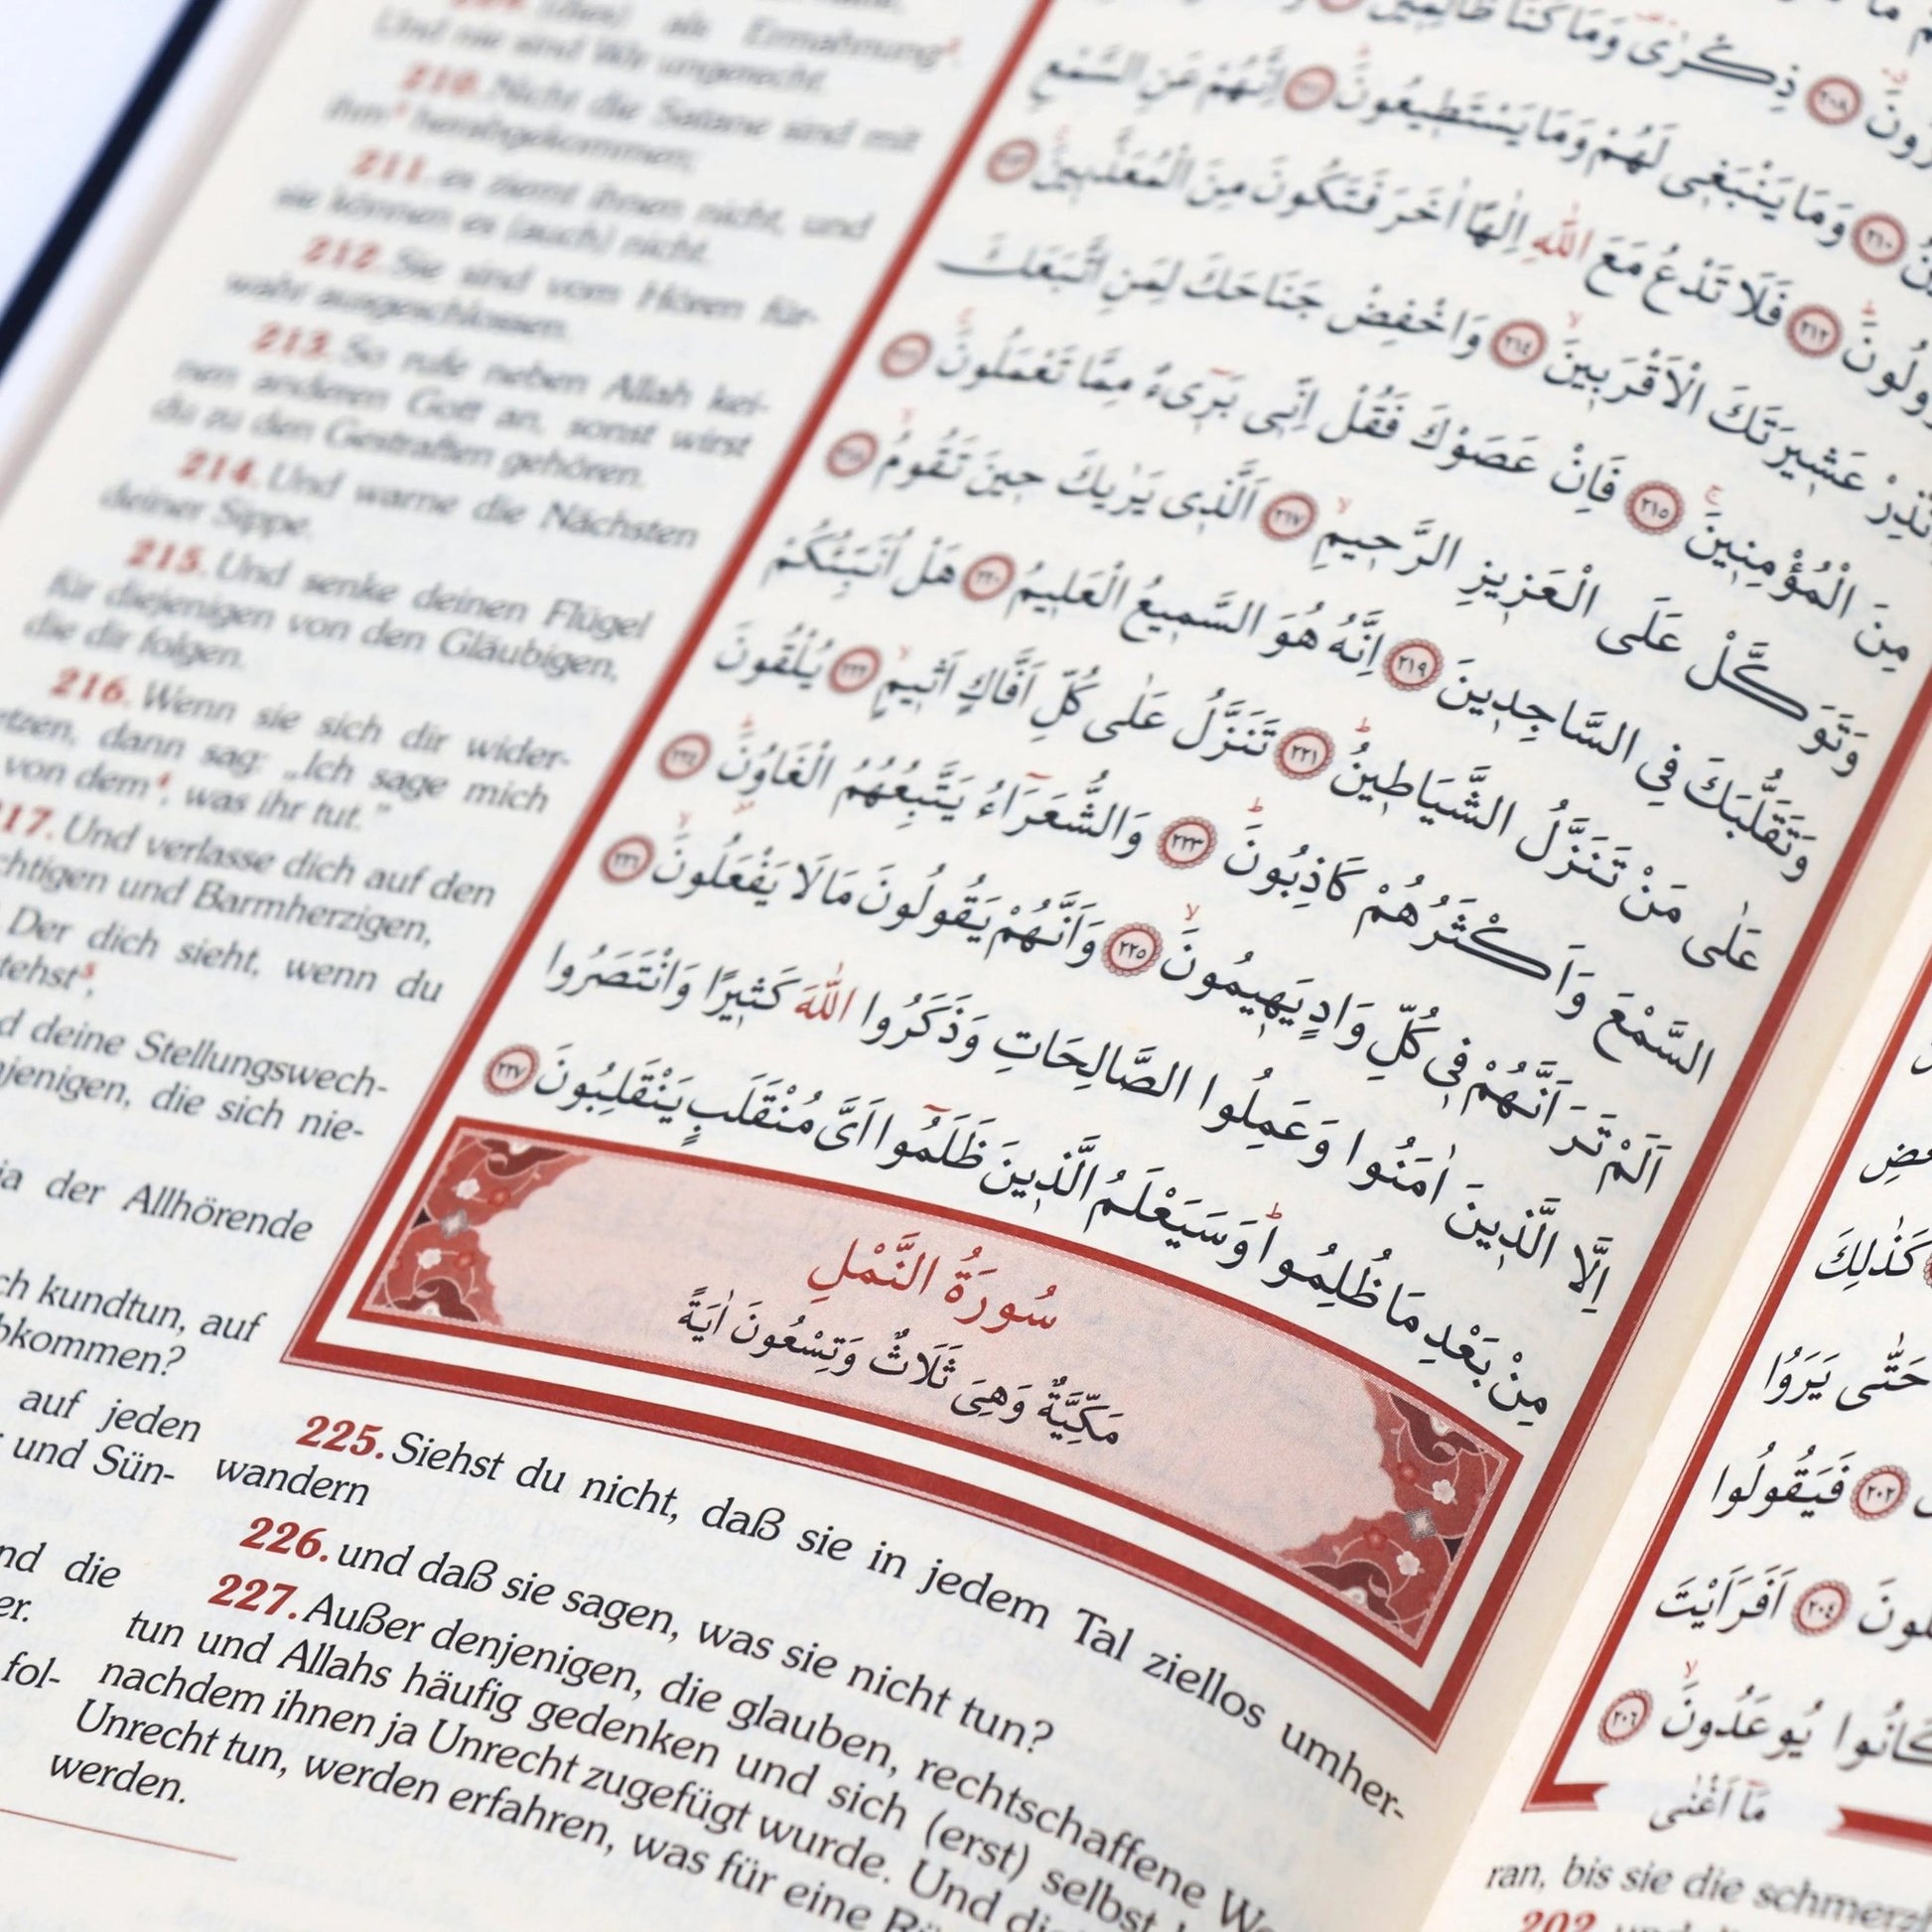 (dies) als Ermahnung².
Und nie sind Wir ungerecht.
210. Nicht die Satane sind mit
ihm³ herabgekommen;
211. es ziemt ihnen nicht, und
sie können es (auch) nicht.
212. Sie sind vom Hören für-
wahr ausgeschlossen.
213. So rufe neben Allah kei-
nen anderen Gott an, sonst wirst
du zu den Gestraften gehören.
214. Und warne die Nächsten
deiner Sippe.
215. Und senke deinen Flügel
für diejenigen von den Gläubigen,
die dir folgen.
216. Wenn sie sich dir wider-
etzen, dann sag: „Ich sage mich
von dem⁴, was ihr tut.”
17. Und verlasse dich auf den
chtigen und Barmherzigen,
Der dich sieht, wenn du
tehst⁵,
d deine Stellungswech-
jenigen, die sich nie-
ja der Allhörende
ch kundtun, auf
bkommen?
auf jeden
und Sün-
nd die
er.
fol-
ذِكْرٰى وَمَا كُنَّا ظَالِمِينَ
وَمَا يَنْبَغِى لَهُمْ وَمَا يَسْتَطِيعُونَ ﴿٢١١﴾ اِنَّهُمْ عَنِ السَّمْعِ
﴿٢١٢﴾ فَلَا تَدْعُ مَعَ اللّٰهِ اِلٰهًا اٰخَرَ فَتَكُونَ مِنَ الْمُعَذَّبِينَ ﴿٢١٣﴾
عَشِيرَتَكَ الْاَقْرَبِينَ ﴿٢١٤﴾ وَاخْفِضْ جَنَاحَكَ لِمَنِ اتَّبَعَكَ
مِنَ الْمُؤْمِنِينَ ﴿٢١٥﴾ فَاِنْ عَصَوْكَ فَقُلْ اِنِّى بَرِٓىءٌ مِمَّا تَعْمَلُونَ ﴿٢١٦﴾
وَتَوَكَّلْ عَلَى الْعَزِيزِ الرَّحِيمِ ﴿٢١٧﴾ اَلَّذِى يَرٰيكَ حِينَ تَقُومُ ﴿٢١٨﴾
وَتَقَلُّبَكَ فِي السَّاجِدِينَ ﴿٢١٩﴾ اِنَّهُ هُوَ السَّمِيعُ الْعَلِيمُ ﴿٢٢٠﴾ هَلْ اُنَبِّئُكُمْ
عَلٰى مَنْ تَنَزَّلُ الشَّيَاطِينُ ﴿٢٢١﴾ تَنَزَّلُ عَلٰى كُلِّ اَفَّاكٍ اَثِيمٍ ﴿٢٢٢﴾ يُلْقُونَ
السَّمْعَ وَاَكْثَرُهُمْ كَاذِبُونَ ﴿٢٢٣﴾ وَالشُّعَرَٓاءُ يَتَّبِعُهُمُ الْغَاوُنَ ﴿٢٢٤﴾
اَلَمْ تَرَ اَنَّهُمْ فِى كُلِّ وَادٍ يَهِيمُونَ ﴿٢٢٥﴾ وَاَنَّهُمْ يَقُولُونَ مَا لَا يَفْعَلُونَ ﴿٢٢٦﴾
اِلَّا الَّذِينَ اٰمَنُوا وَعَمِلُوا الصَّالِحَاتِ وَذَكَرُوا اللّٰهَ كَثِيرًا وَانْتَصَرُوا
مِنْ بَعْدِ مَا ظُلِمُوا وَسَيَعْلَمُ الَّذِينَ ظَلَمُٓوا اَىَّ مُنْقَلَبٍ يَنْقَلِبُونَ ﴿٢٢٧﴾
سُورَةُ النَّمْلِ
مَكِّيَّةٌ وَهِىَ ثَلَاثٌ وَتِسْعُونَ اٰيَةً
225. Siehst du nicht, daß sie in jedem Tal ziellos umher-
wandern
226. und daß sie sagen, was sie nicht tun?
227. Außer denjenigen, die glauben, rechtschaffene We
tun und Allahs häufig gedenken und sich (erst) selbst
nachdem ihnen ja Unrecht zugefügt wurde. Und di
Unrecht tun, werden erfahren, was für eine
werden.
كَذٰلِكَ
حَتّٰى يَرَوُا
﴿٢٠٢﴾ فَيَقُولُوا
﴿٢٠٤﴾ اَفَرَاَيْتَ
كَانُوا يُوعَدُونَ ﴿٢٠٦﴾
مَٓا اَغْنٰى
ran, bis sie die schmerz
202.